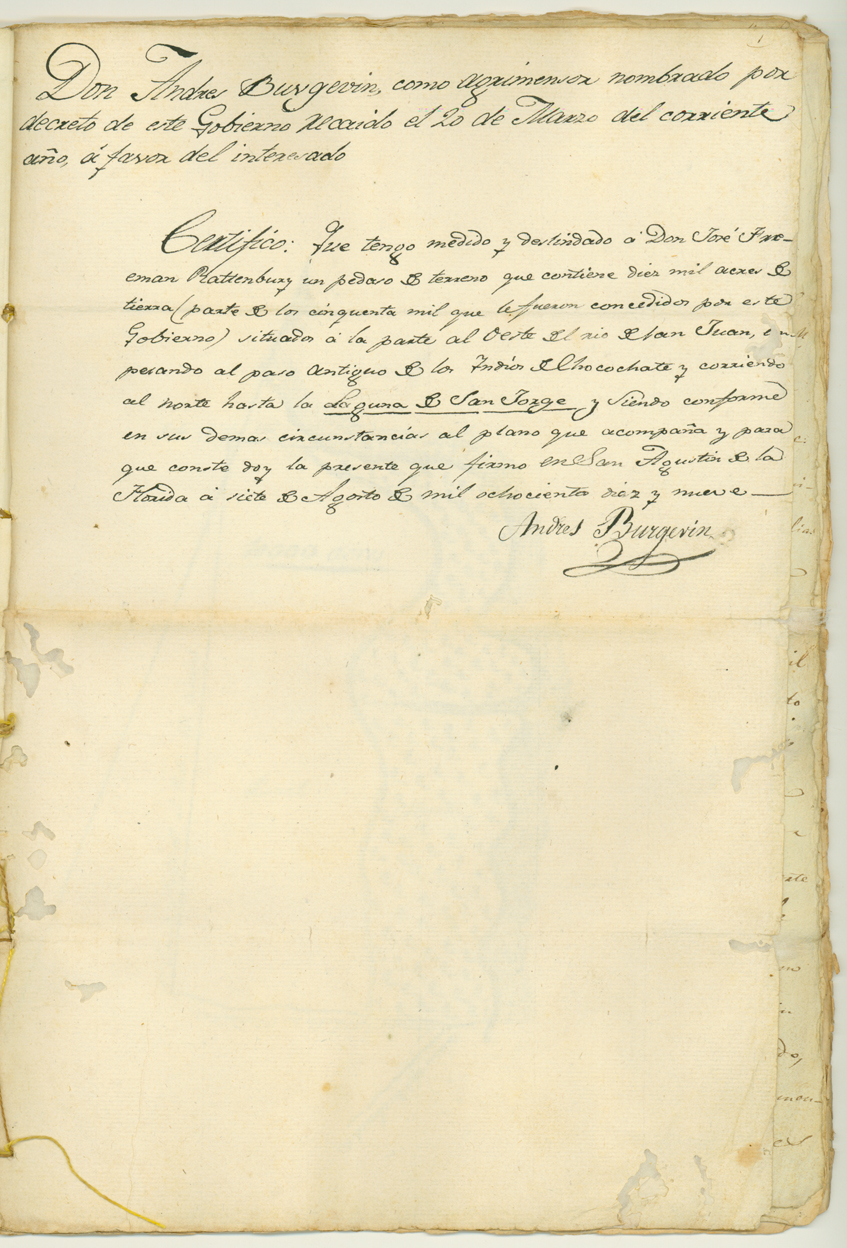 Don Andres Burgevin, como agrimensor nombrado por
decreto de este Gobierno recaido el 20 de Marzo del corriente
año, á favor del interesado
Certifico: Que tengo medido y deslindado á Don José Fre-
eman Rattenbury un pedaso de terreno que contiene diez mil acres de
tierra (parte de los cinquenta mil que le fueron concedidos por este
Gobierno) situados á la parte al Oeste del rio de San Juan, em
pesando al paso antiguo de los Indios de Chocochate y corriendo
al norte hasta la Laguna de San Jorge, y siendo conforme
en sus demas circunstancias al plano que acompaña y para
que conste doy la presente que firmo en San Agustin de la
Florida á siete de Agosto de mil ochocienta diez y nueve
Andres Burgevin